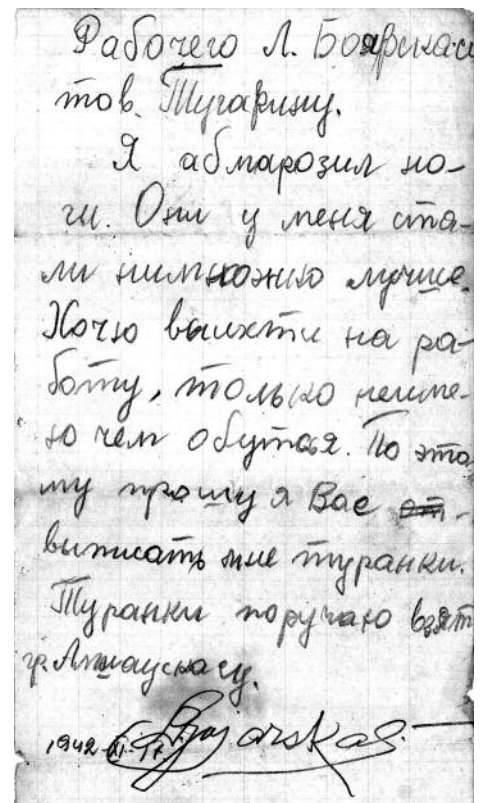 Рабочего Л. Боярскаса
тов. Тугарину.
Я абмарозил но-
ги. Они у меня ста-
ли нимножко лучше.
Хочю выихти на ра-
боту, только неиме-
ю чем обутся. По это
му прошу я Вас
выписать мне туранки.
Туранки поручаю взят
гр.
1942-XI-17. Bojarskas.